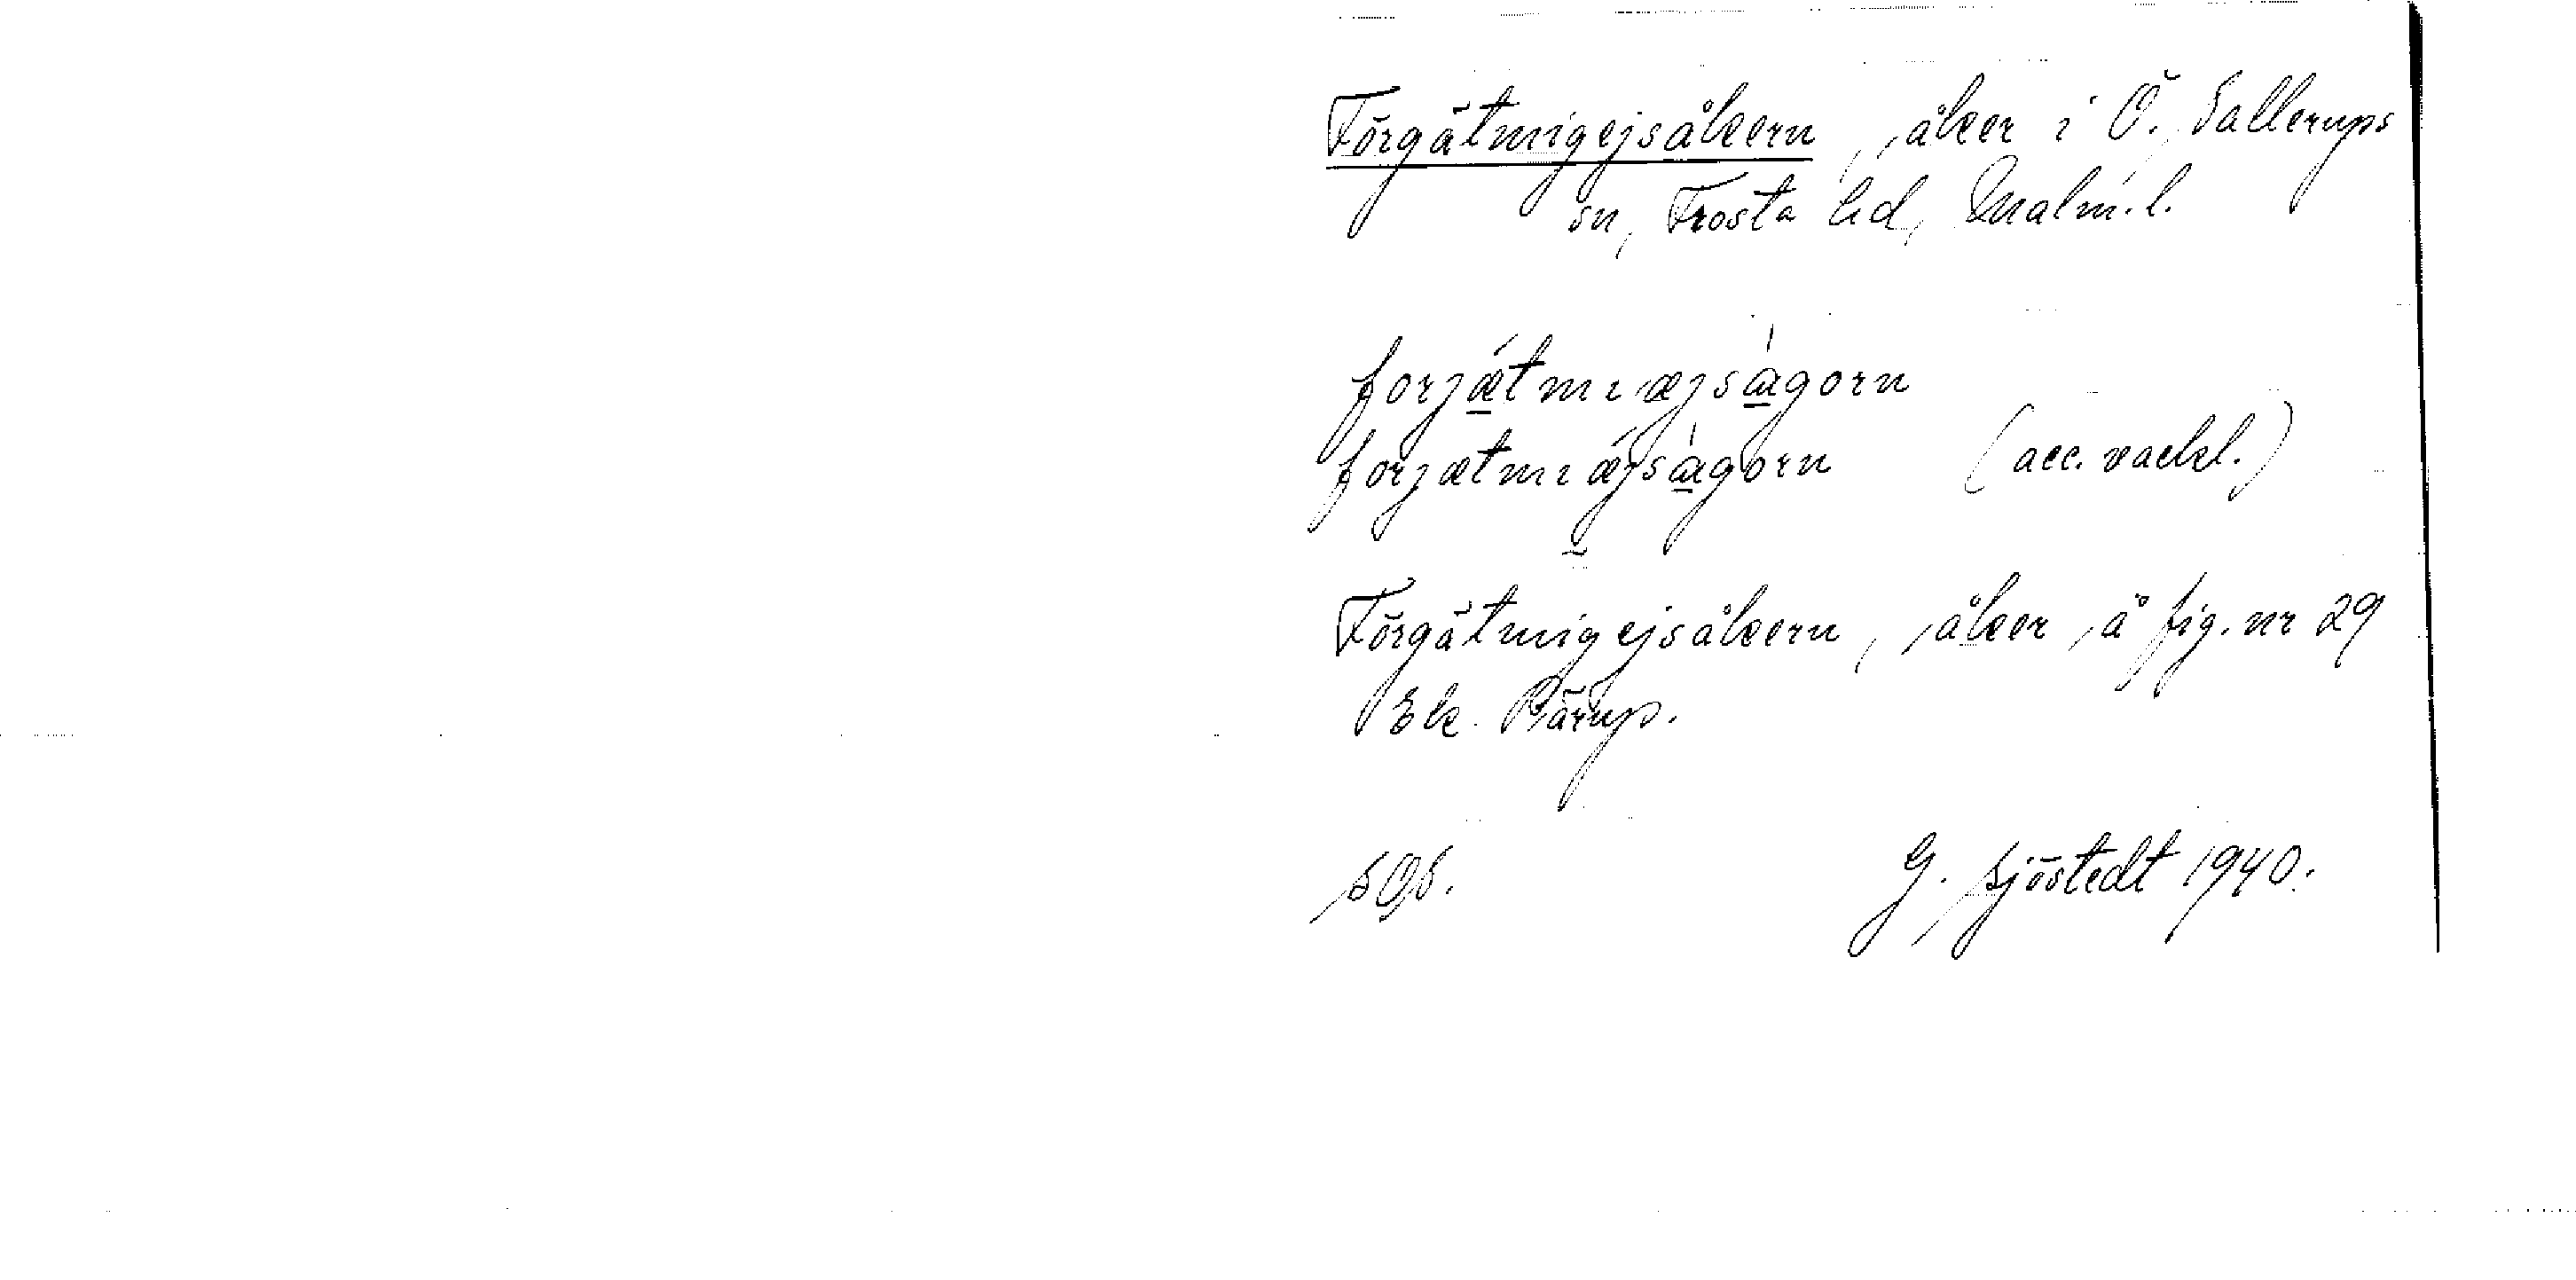 Förgätmigejsåkern, åker i Ö. Sallerups
sn, Frosta hd, Malm. l.
forjǽtmıæjsàgorn
forjætmıǽjsàgorn (acc. vackl.)
Förgätmigejsåkern, åker å fig. nr 29
Ek. Pärup.
SOS. G. Sjöstedt 1940.